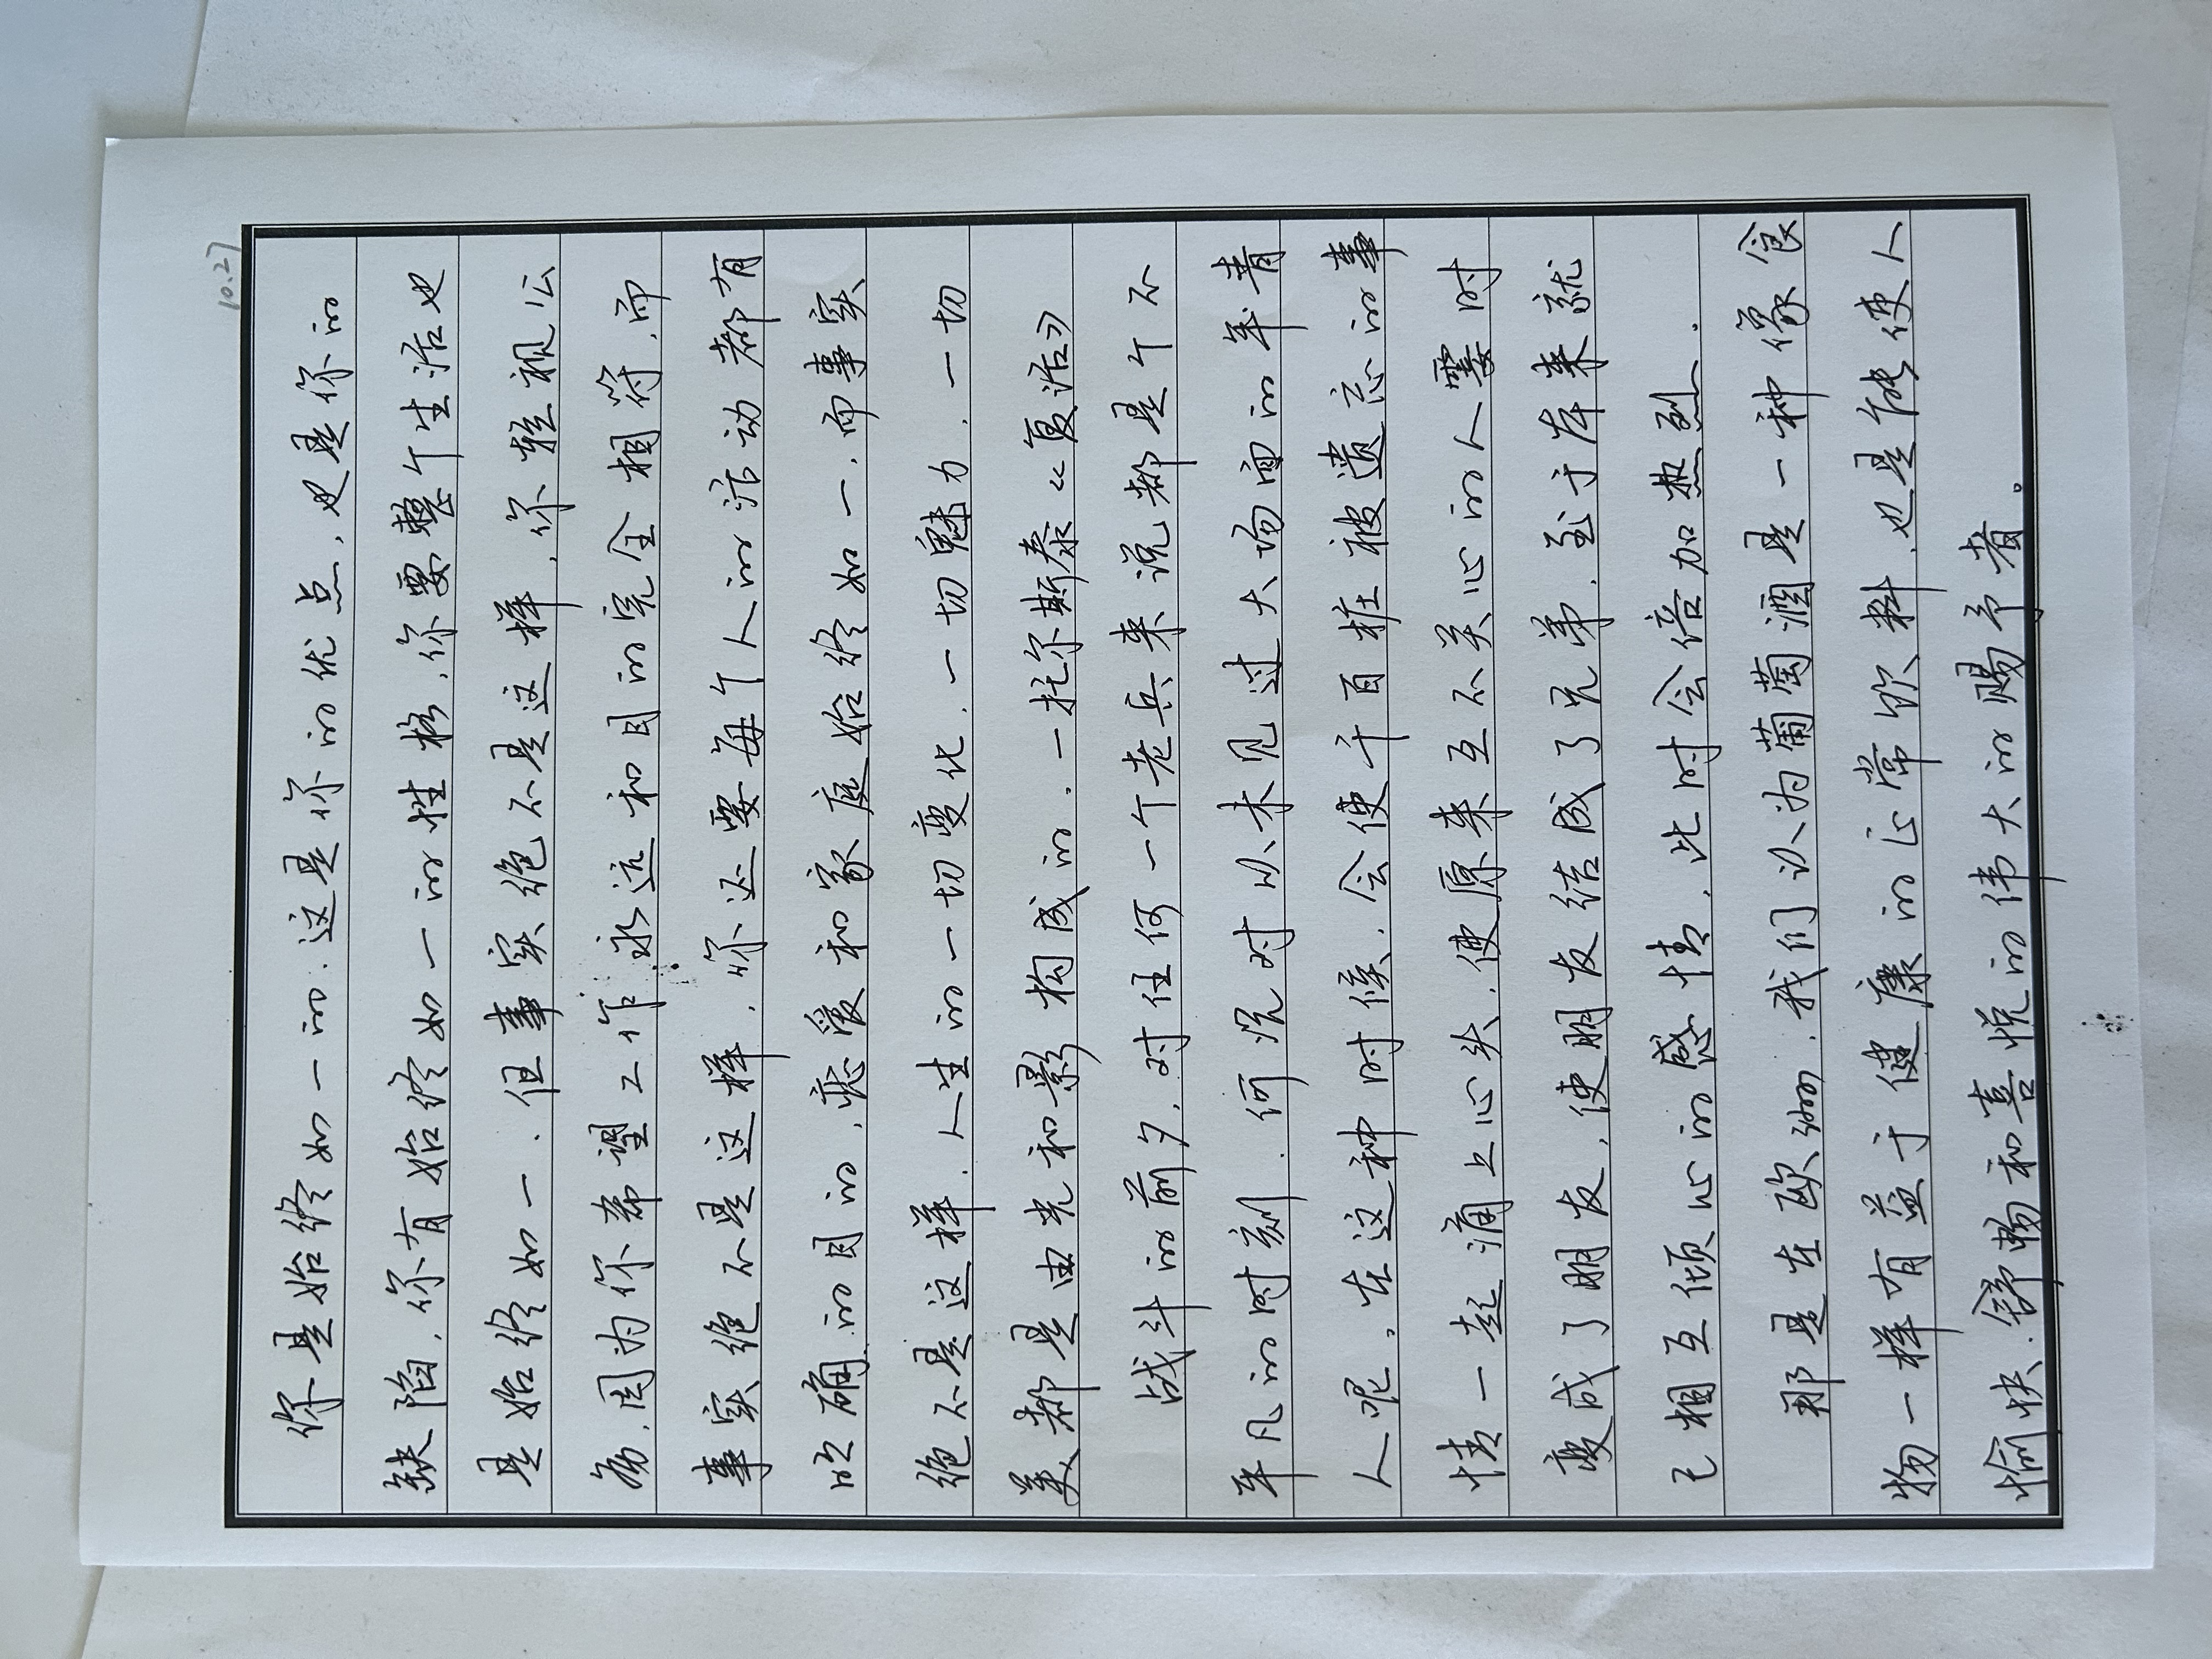 10.27
你是始终如一的.这是你的优点,也是你的
缺陷,你有始终如一的性格,你要整个生活也
是始终如一.但事实绝不是这样,你轻视公
务,因为你希望工作永远和目的完全相符,而
事实绝不是这样,你还要每个人的活动都有
明确的目的,恋爱和家庭始终如一,而事实
绝不是这样.人生的一切变化,一切魅力,一切
美都是由光和影构成的.一托尔斯泰《复活》
战斗的前夕,对任何一个老兵来说都是个不
平凡的时刻.何况对从未见过大场面的年青
人呢。在这种时候,会使千百桩被遗忘的事
情一起涌上心头,使原来互不关心的人霎时
变成了朋友,使朋友结成了兄弟,至于本来就
已相互倾心的感情,此时会倍加热烈.
那是在欧洲,我们认为葡萄酒是一种像食
物一样有益于健康的正常饮料,也是能使人
愉快.舒畅和喜悦的伟大的赐予者。